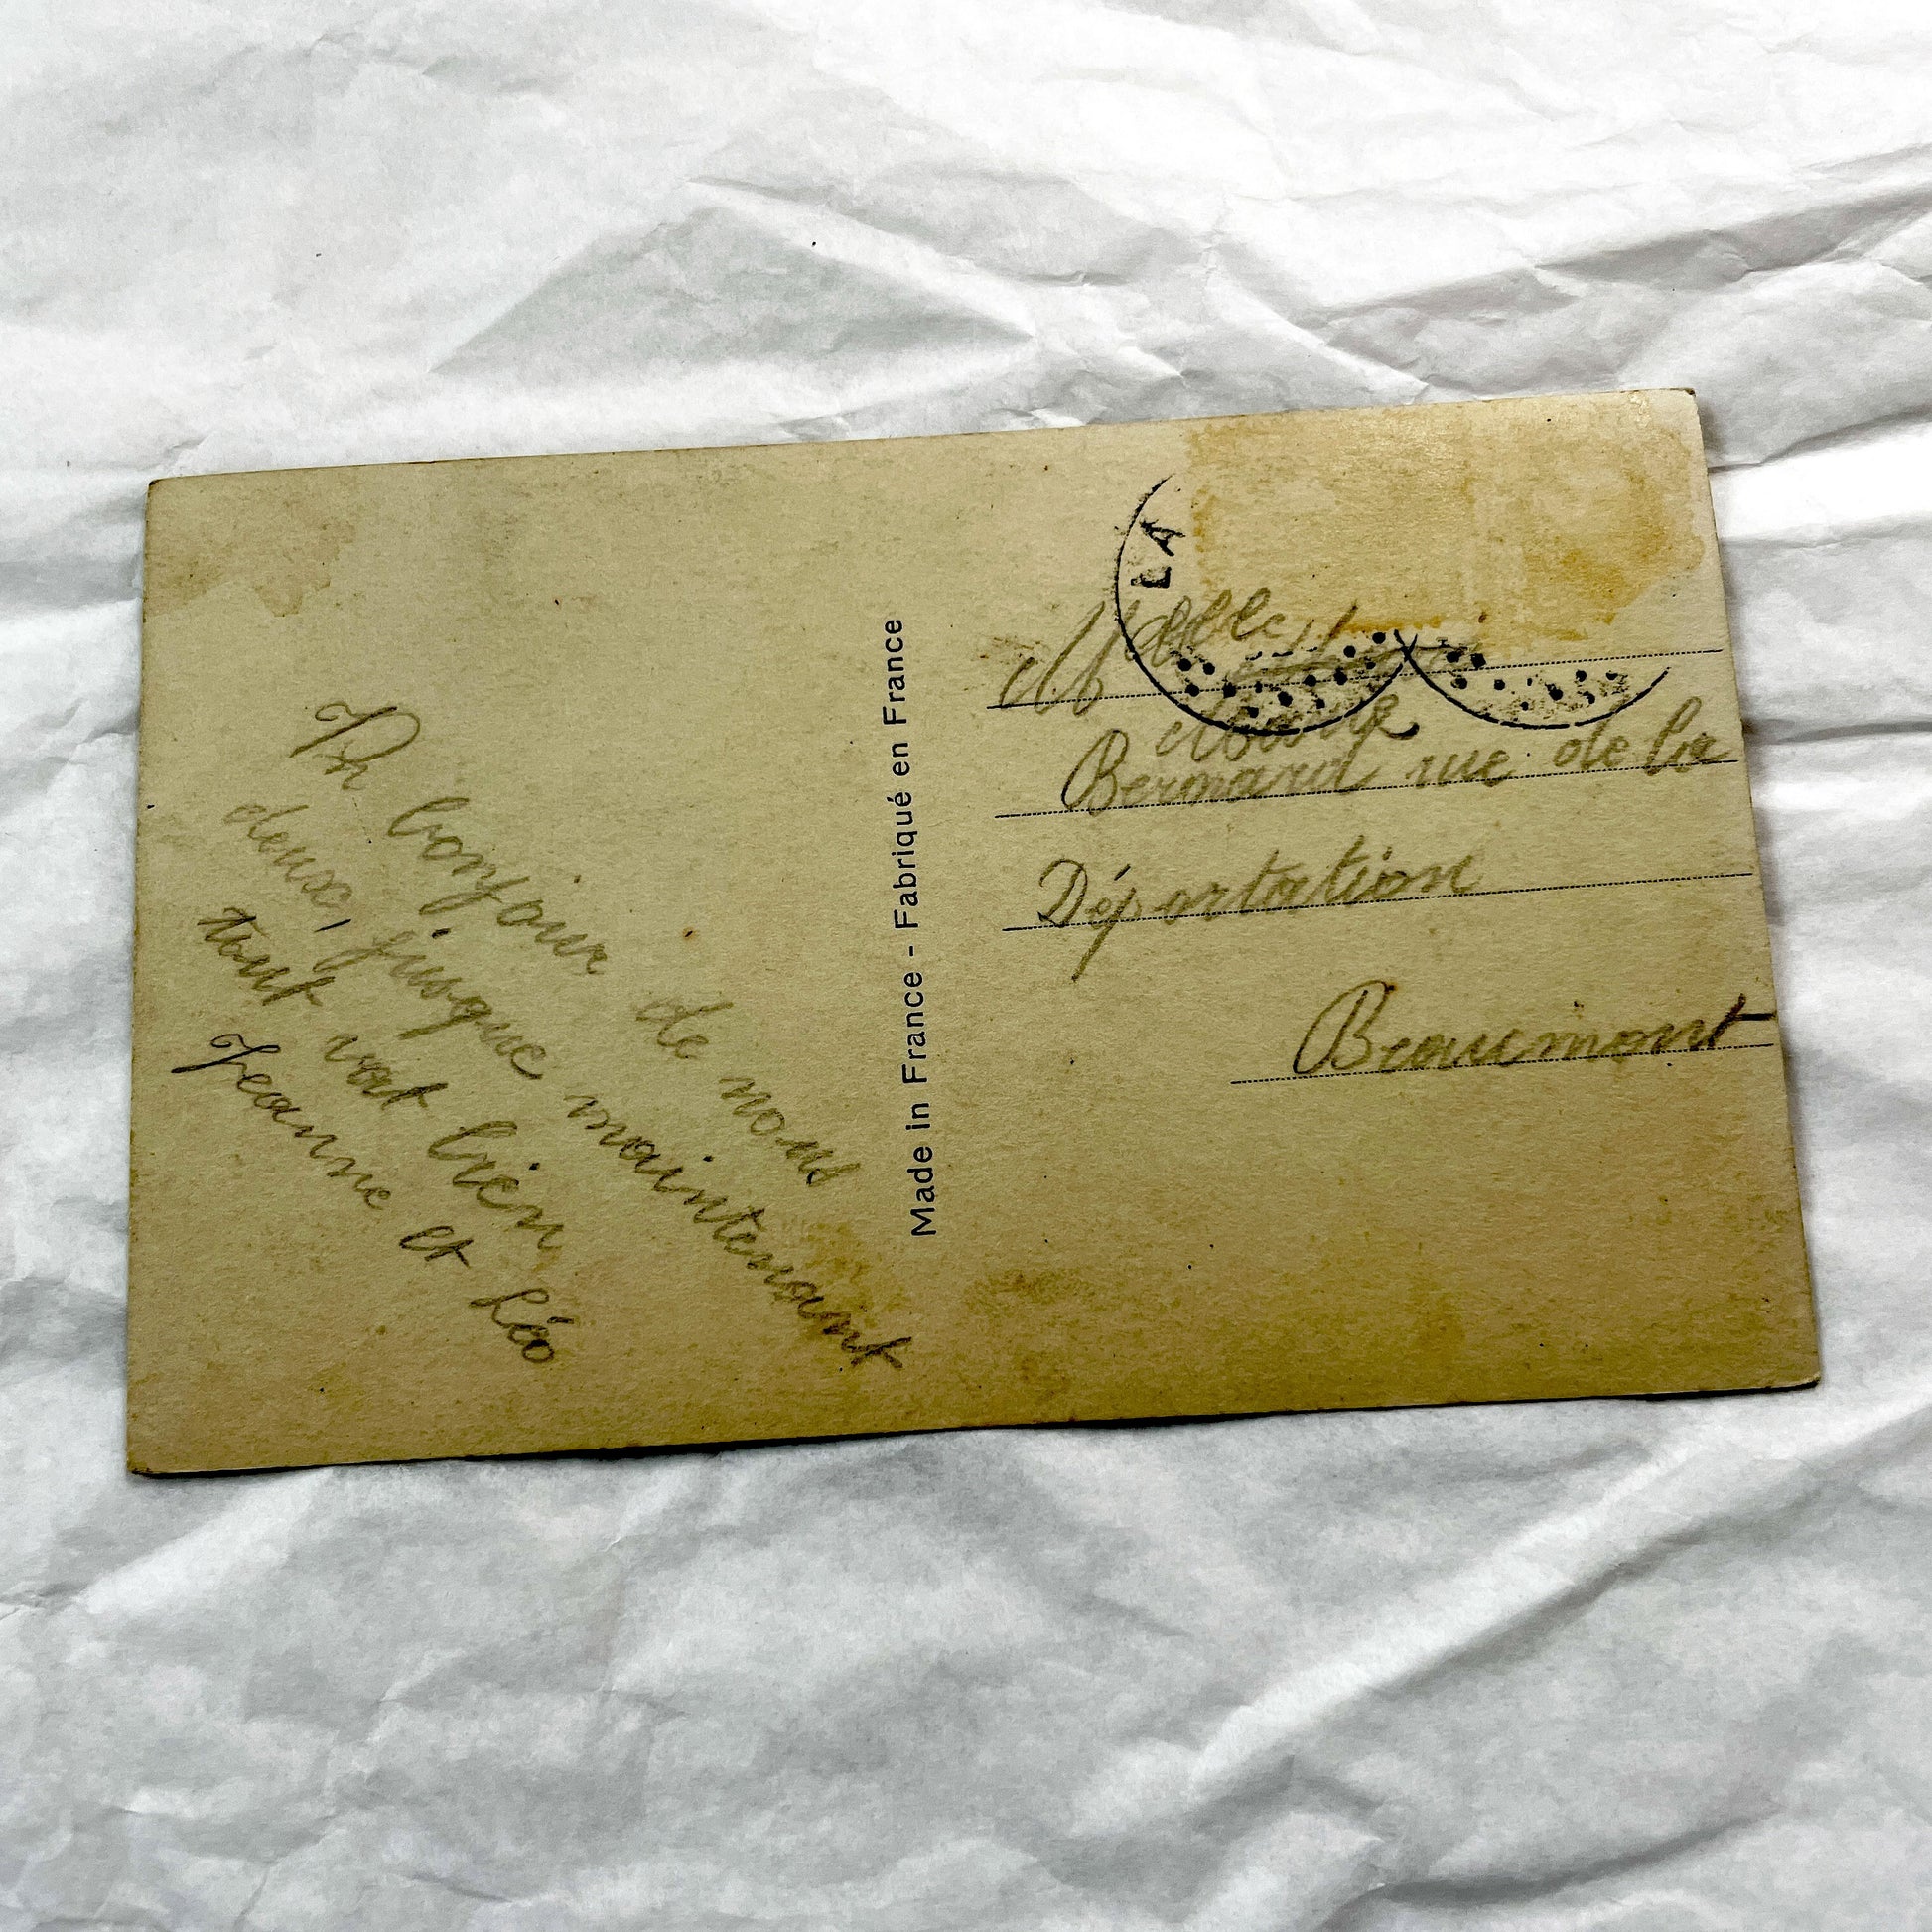 bonjour de nous
deux, jusque maintenant
tout vat bien
Jeanne et Léo
Made in France - Fabriqué en France
LA
Melle
Marie
Bernard rue de la
Déportation
Beaumont